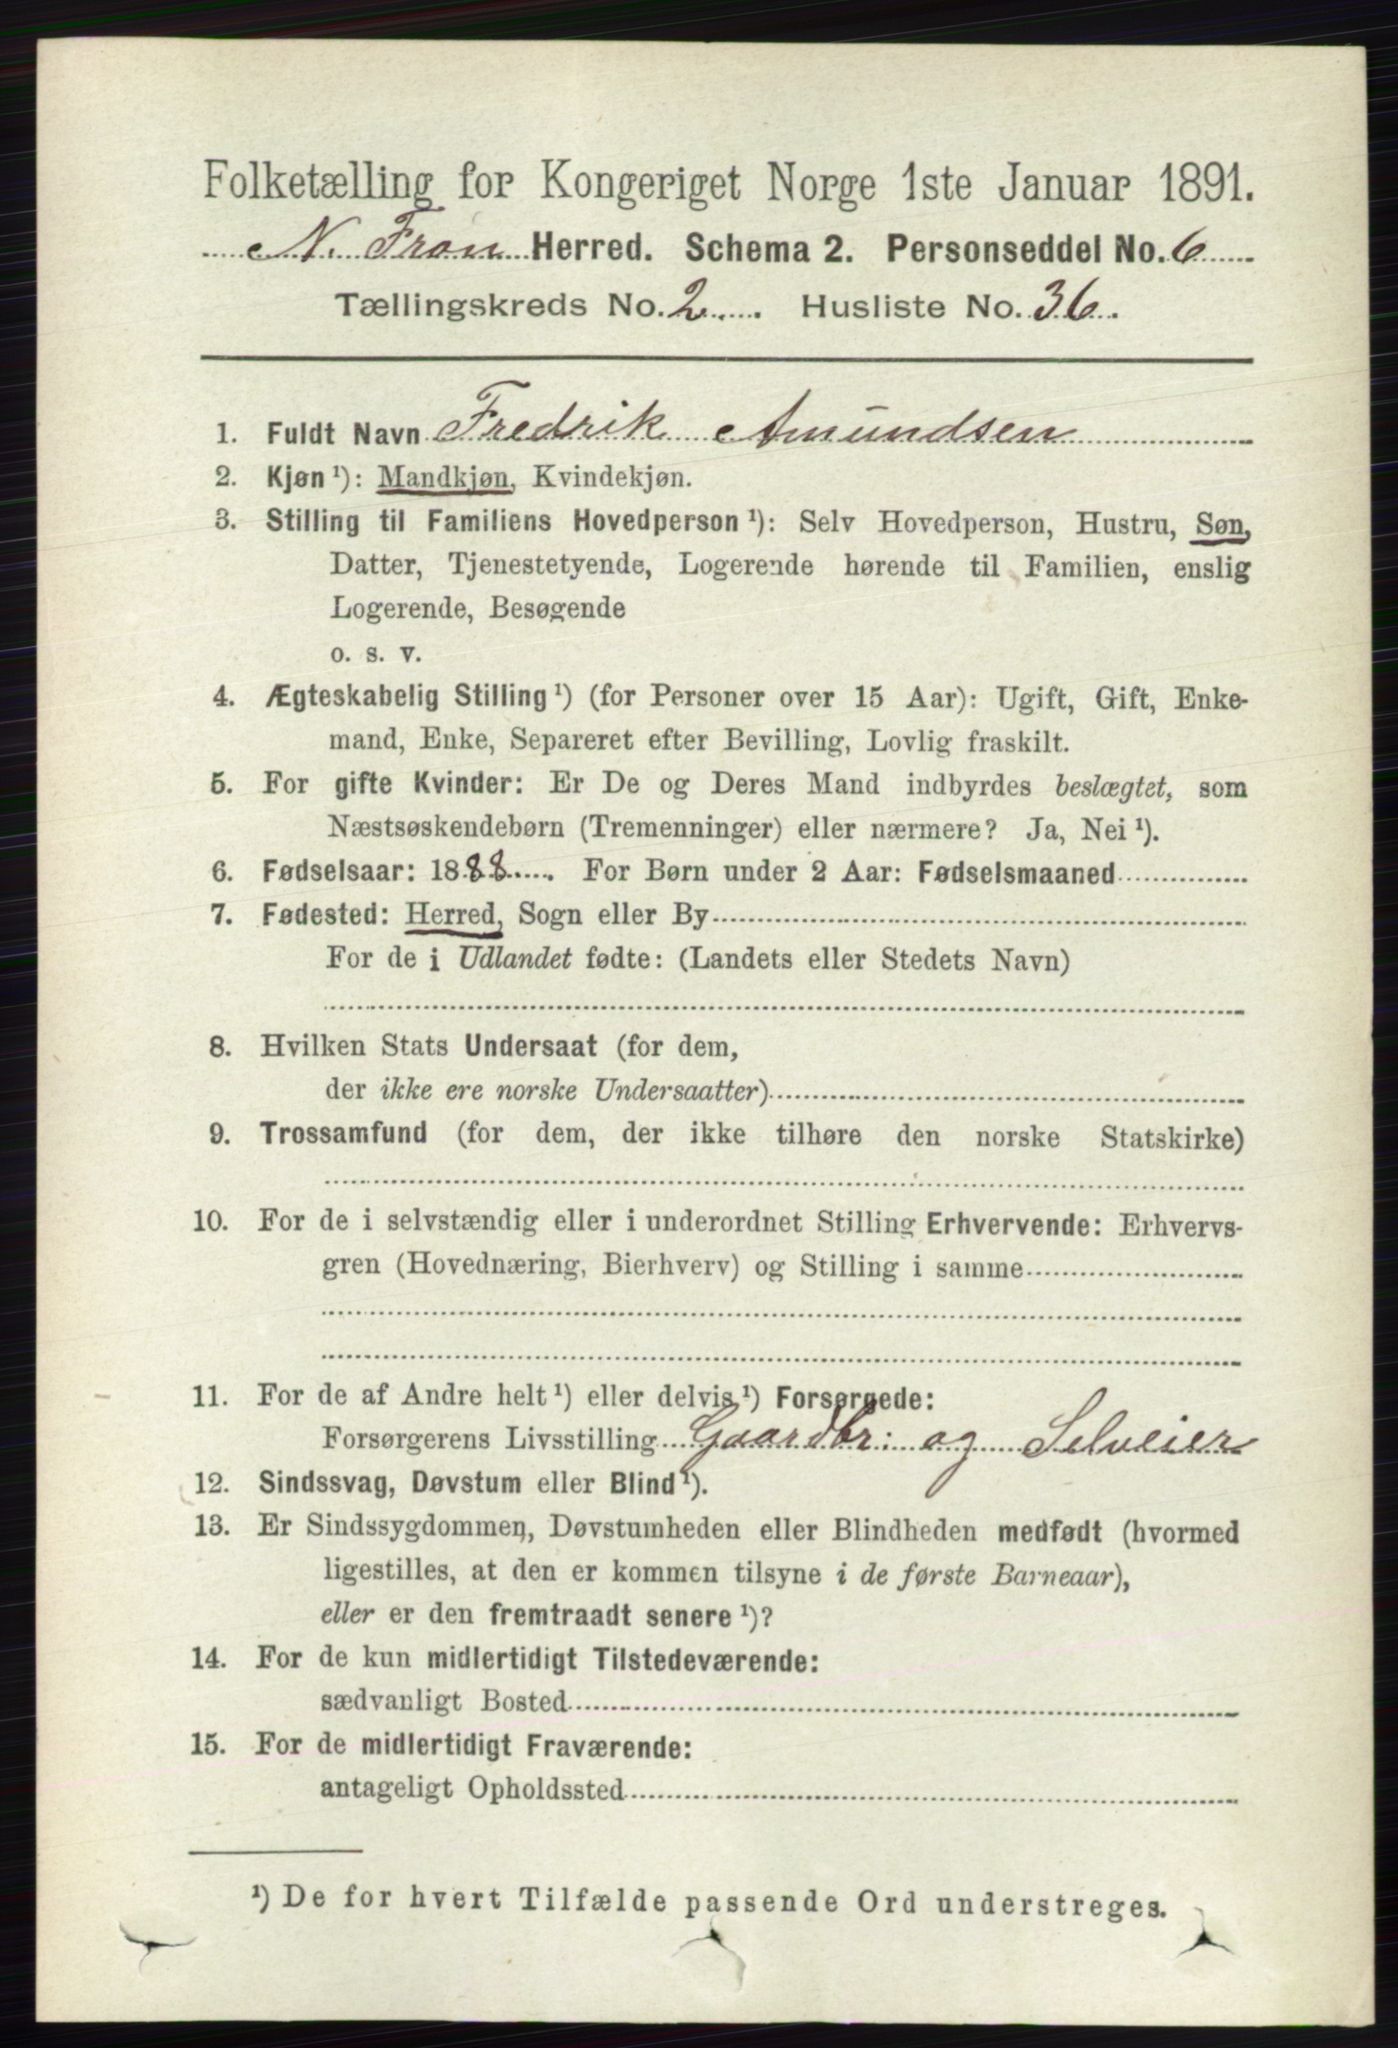 Folketælling for Kongeriget Norge 1ste Januar 1891.
N. Fron Herred. Schema 2. Personseddel No. 6
Tællingskreds No. 2 Husliste No. 36.
1. Fuldt Navn Fredrik Amundsen
2. Kjøn ¹): Mandkjøn, Kvindekjøn.
3. Stilling til Familiens Hovedperson ¹): Selv Hovedperson, Hustru, Søn,
Datter, Tjenestetyende, Logerende hørende til Familien, enslig
Logerende, Besøgende
o. s. v.
4. Ægteskabelig Stilling ¹) (for Personer over 15 Aar): Ugift, Gift, Enke-
mand, Enke, Separeret efter Bevilling, Lovlig fraskilt.
5. For gifte Kvinder: Er De og Deres Mand indbyrdes beslægtet, som
Næstsøskendebørn (Tremenninger) eller nærmere? Ja, Nei ¹).
6. Fødselsaar: 1888. For Børn under 2 Aar: Fødselsmaaned
7. Fødested: Herred, Sogn eller By
For de i Udlandet fødte: (Landets eller Stedets Navn)
8. Hvilken Stats Undersaat (for dem,
der ikke ere norske Undersaatter)
9. Trossamfund (for dem, der ikke tilhøre den norske Statskirke)
10. For de i selvstændig eller i underordnet Stilling Erhvervende: Erhvervs-
gren (Hovednæring, Bierhverv) og Stilling i samme
11. For de af Andre helt ¹) eller delvis ¹) Forsørgede:
Forsørgerens Livsstilling Gaardbr: og Selveier
12. Sindssvag, Døvstum eller Blind ¹).
13. Er Sindssygdommen, Døvstumheden eller Blindheden medfødt (hvormed
ligestilles, at den er kommen tilsyne i de første Barneaar),
eller er den fremtraadt senere ¹)?
14. For de kun midlertidigt Tilstedeværende:
sædvanligt Bosted
15. For de midlertidigt Fraværende:
antageligt Opholdssted
¹) De for hvert Tilfælde passende Ord understreges.